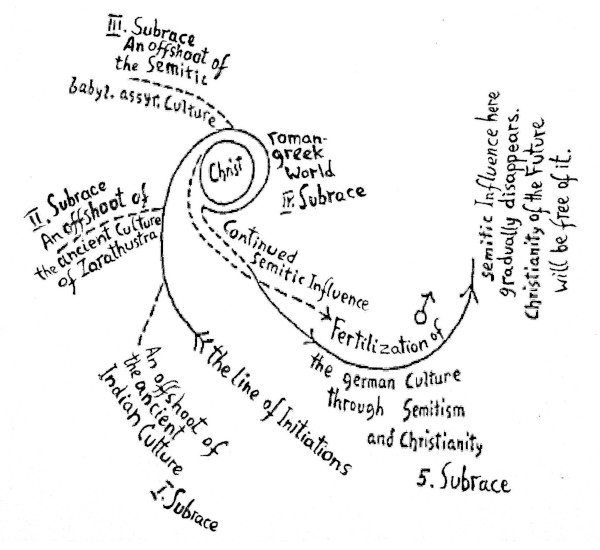 III. Subrace
An offshoot of
the Semitic
babyl. assyr. Culture
Christ
roman-
greek
World
IV. Subrace
II. Subrace
An offshoot of
the ancient Culture
of Zarathustra
Continued
Semitic Influence
semitic Influence here
gradually disappears.
Christianity of the Future
will be free of it.
♂
Fertilization of
the german Culture
through Semitism
and Christianity
5. Subrace
the line of Initiations
An offshoot of
the ancient
Indian Culture
I. Subrace